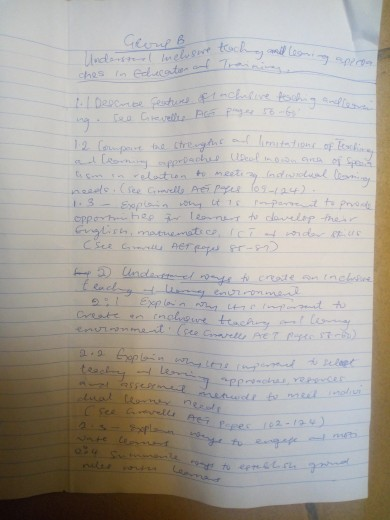 Group B
Understand Inclusive teaching and learning approa
ches in Education and Training.
1.1 Describe features of inclusive teaching and learni
ng. See Gravells AET pages 56-
1.2 Compare the strengths and limitations of teaching
and learning approaches used in own area of special
ism in relation to meeting individual learning
needs. (See Gravells AET pages 109-124).
1.3 - Explain why it is important to provide
opportunities for learners to develop their
English, mathematics, ICT and wider skills
(See Gravells AET pages 85-87)
2) Understand ways to create an inclusive
teaching and learning environment
2:1 Explain why it is important to
create an inclusive teaching and learning
environment. (See Gravells AET pages
2.2 Explain why it is important to select
teaching and learning approaches, resources
and assessment methods to meet indivi
dual learner needs
(See Gravells AET pages 102-124)
2.3 - Explain ways to engage and moti
vate learners
2.4 Summarise ways to establish ground
rules with learners